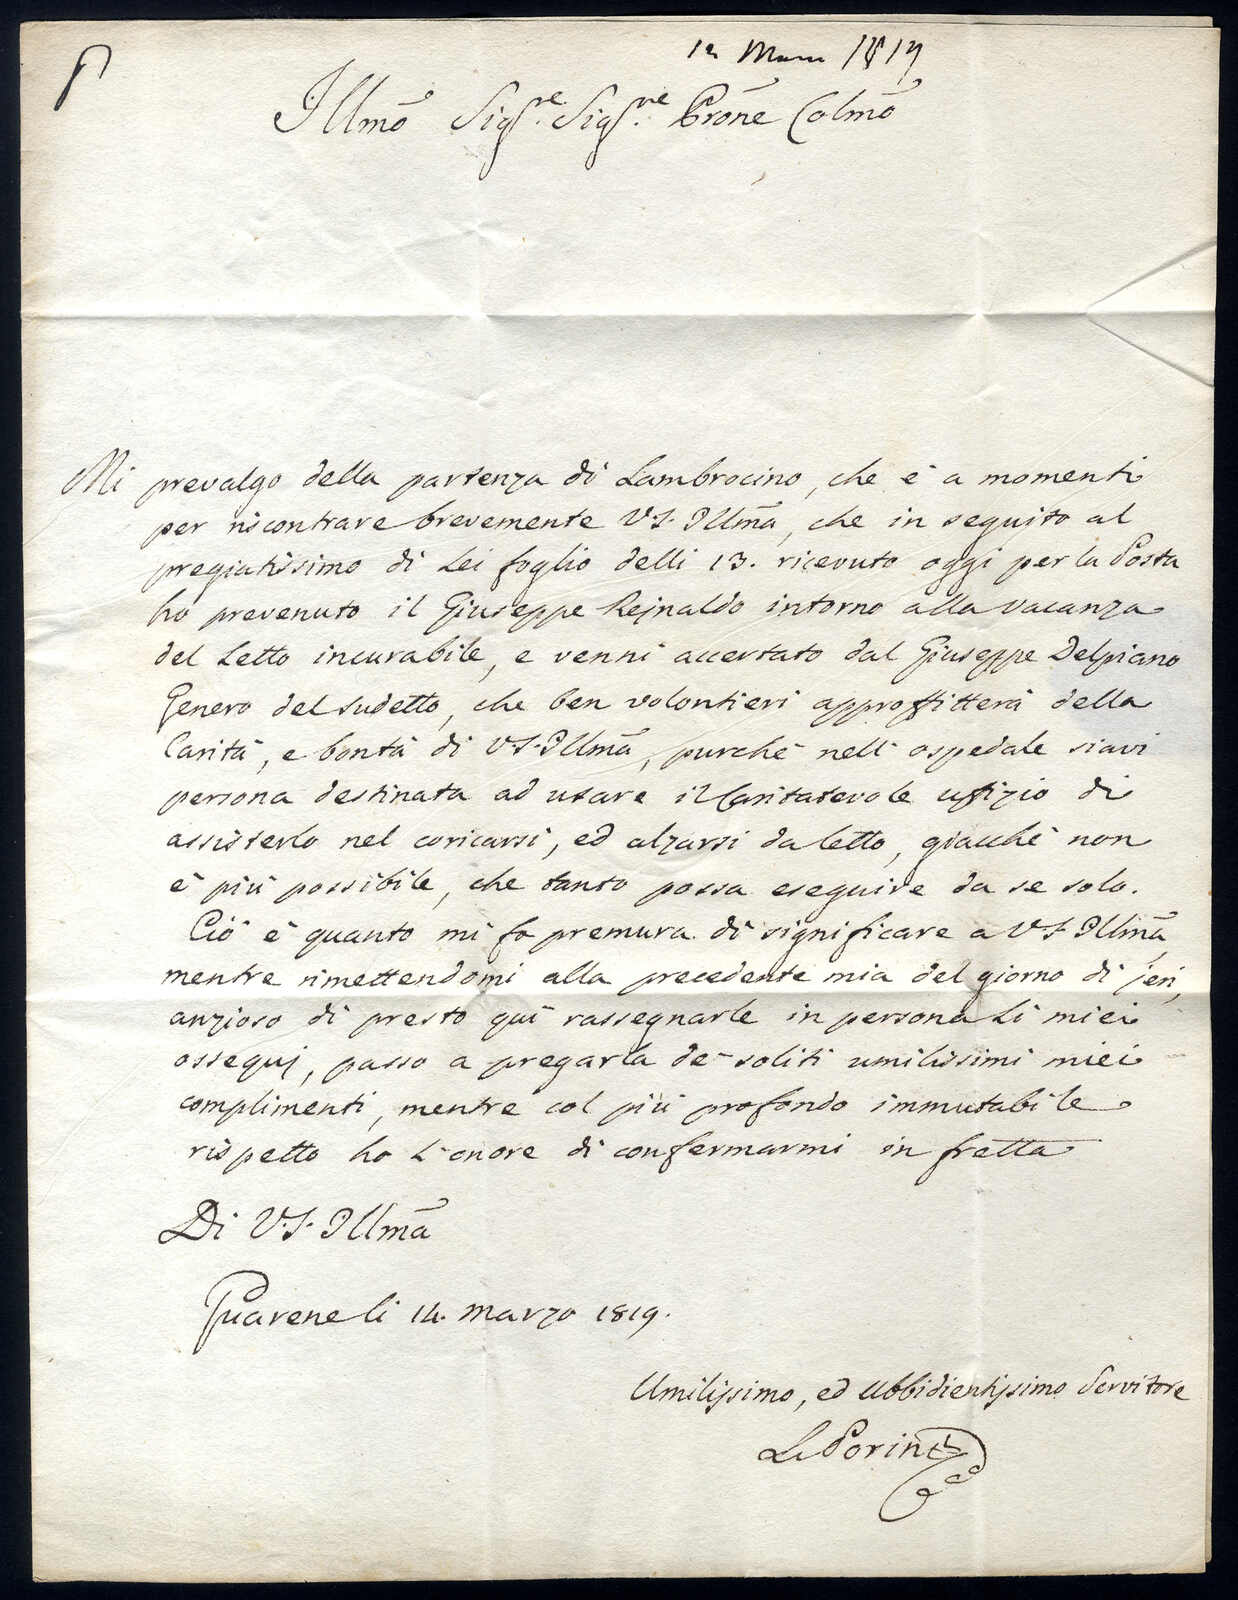 1819
Illmõ Sig.re Sig.re Prõne Colmõ
Mi prevalgo della partenza di Lambrocino, che è a momenti
per riscontrare brevemente V.S. Illmã, che in seguito al
pregiatissimo di Lei foglio delli 13. ricevuto oggi per la Posta
ho prevenuto il Giuseppe Rejnaldo intorno alla vacanza
del Letto incurabile, e venni accertato dal Giuseppe Delpiano
Genero del sudetto, che ben volontieri approffitterà della
Carità, e bontà di V.S. Illmã, purchè nell' ospedale siavi
persona destinata ad usare il Caritatevole uffizio di
assisterlo nel coricarsi, ed alzarsi da letto, giacchè non
è più possibile, che tanto possa eseguire da se solo.
Ciò è quanto mi fo premura di significare a V.S. Illmã,
mentre rimettendomi alla precedente mia del giorno di jeri,
anzioso di presto quì rassegnarle in persona li miei
ossequj, passo a pregarla de' soliti umilissimi miei
complimenti, mentre col più profondo immutabile
rispetto ho l'onore di confermarmi in fretta
Di V.S. Illmã
Guarene li 14. marzo 1819.
Umilissimo, ed ubbidientissimo Servitore